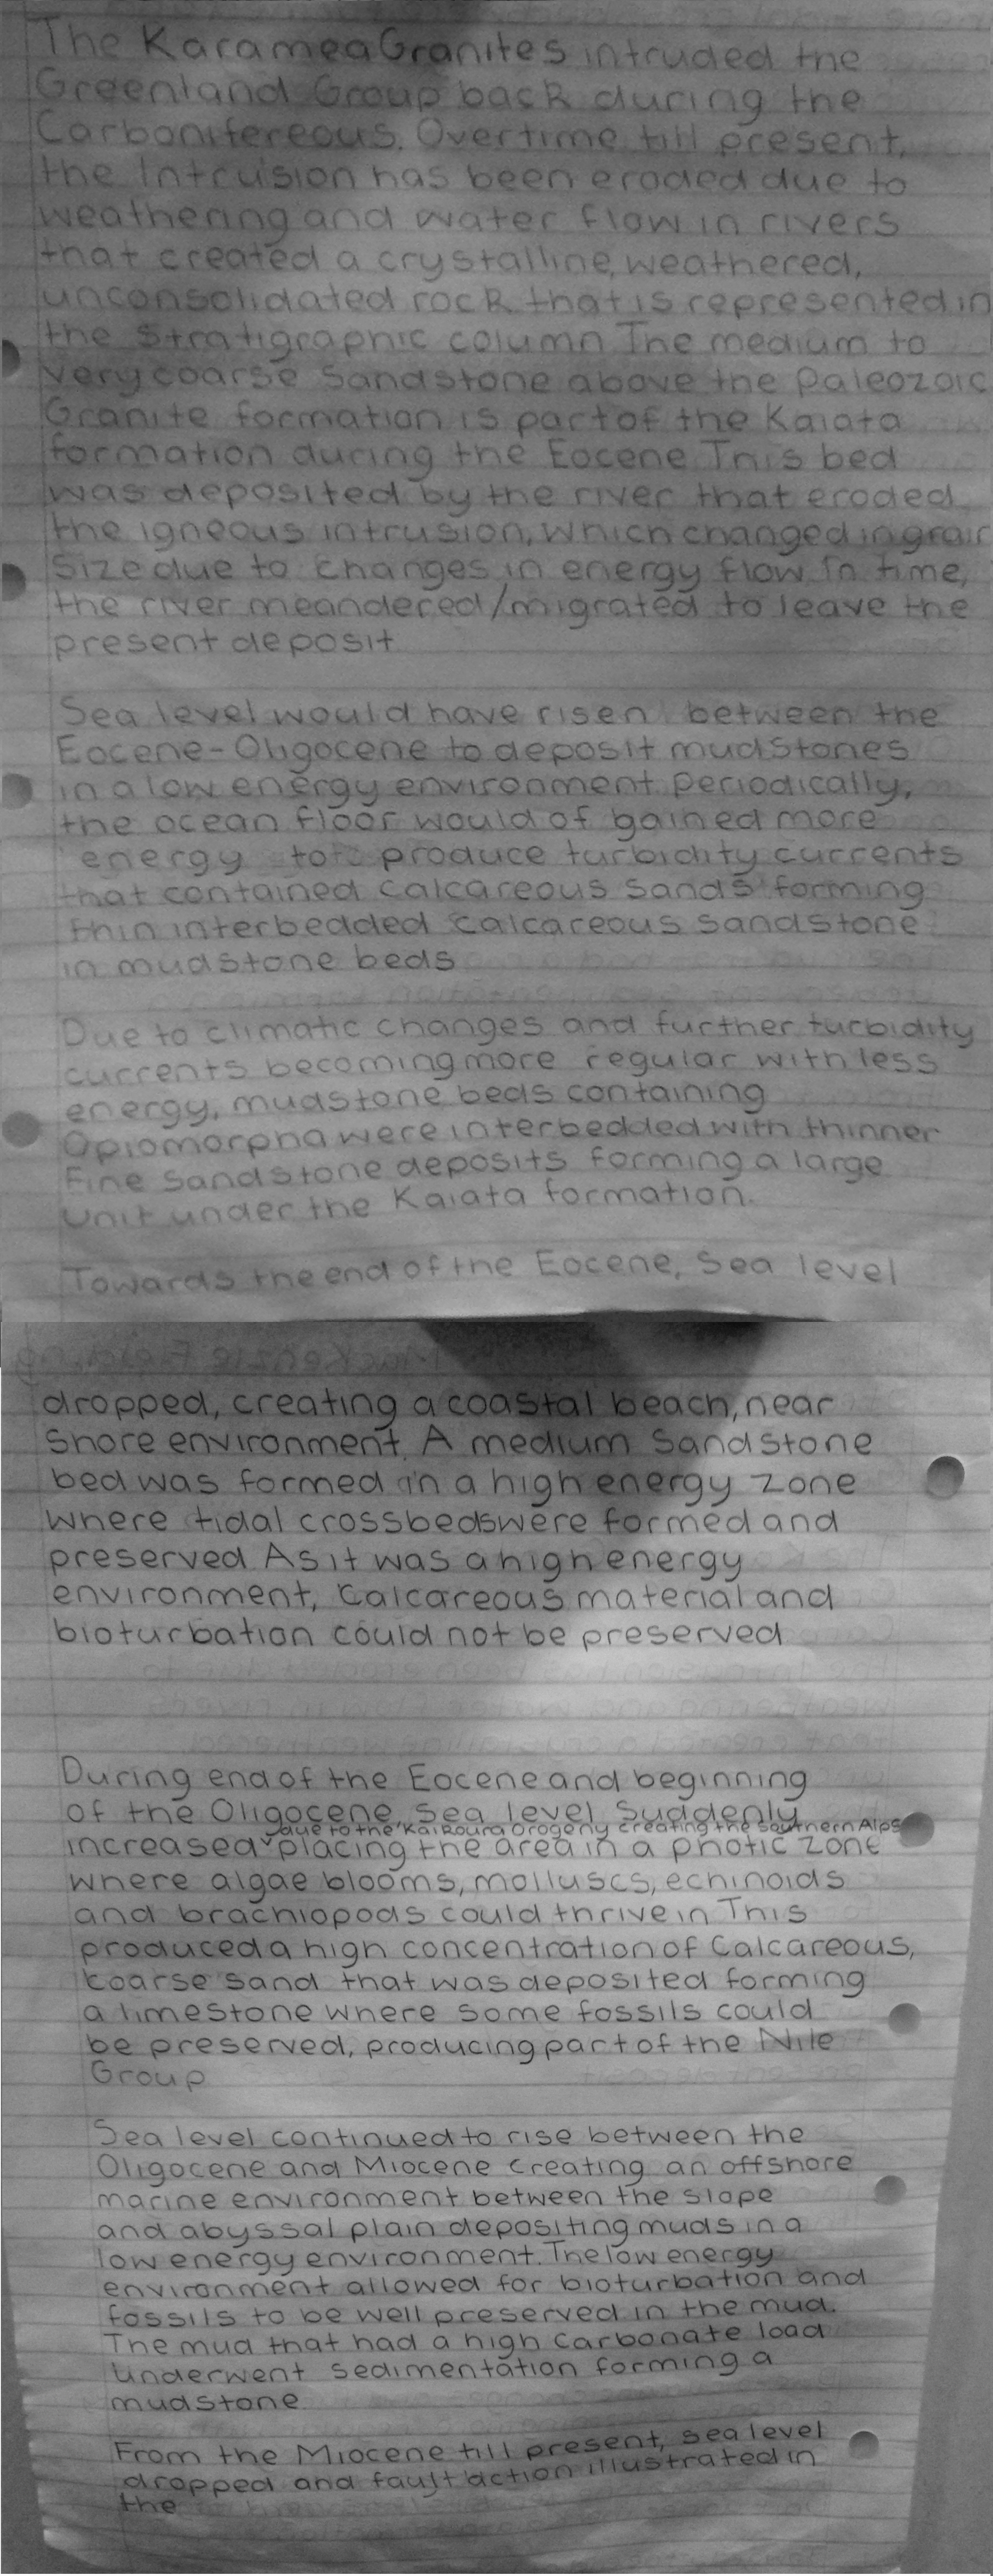 The Karamea Granites intruded the
Greenland Group back during the
Carbonifereous. Overtime till present,
the Intrusion has been eroded due to
weathering and water flow in rivers
that created a crystalline, weathered,
unconsolidated rock that is represented in
the stratigraphic column The medium to
very coarse Sandstone above the Paleozoic
Granite formation is part of the Kaiata
formation during the Eocene This bed
was deposited by the river that eroded
the igneous intrusion, which changed in grain
Size due to changes in energy flow In time,
the river meandered/migrated to leave the
present deposit
Sea level would have risen between the
Eocene-Oligocene to deposit mudstones
in a low energy environment Periodically,
the ocean floor would of gained more
energy to produce turbidity currents
that contained calcareous sands forming
thin interbedded calcareous sandstone
in mudstone beds
Due to climatic changes and further turbidity
currents becoming more regular with less
energy, mudstone beds containing
Opiomorpha were interbedded with thinner
Fine Sandstone deposits forming a large
Unit under the Kaiata formation.
Towards the end of the Eocene, Sea level
Mackenzie Fielding
dropped, creating a coastal beach, near
Shore environment. A medium Sandstone
bed was formed in a high energy zone
where tidal crossbeds were formed and
preserved As it was a high energy
environment, Calcareous material and
bioturbation could not be preserved
During end of the Eocene and beginning
of the Oligocene, Sea level Suddenly
due to the Kaikoura Orogeny creating the southern Alps
increased placing the area in a photic zone
where algae blooms, molluscs, echinoids
and brachiopods could thrive in This
produced a high concentration of Calcareous,
Coarse sand that was deposited forming
a limestone where some fossils could
be preserved, producing part of the Nile
Group
Sea level continued to rise between the
Oligocene and Miocene creating an offshore
marine environment between the slope
and abyssal plain depositing muds in a
low energy environment. The low energy
environment allowed for bioturbation and
fossils to be well preserved in the mud.
The mud that had a high carbonate load
underwent sedimentation forming a
mudstone
From the Miocene till present, sea level
dropped and fault action illustrated in
the